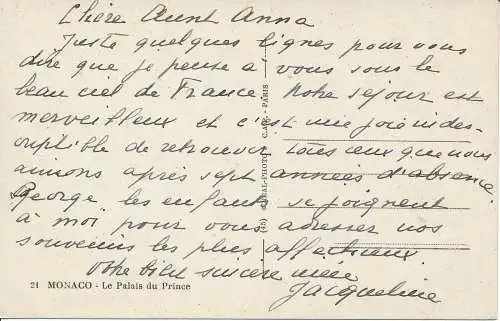 Chère Aunt Anna
Juste quelques lignes pour vous
dire que je pense à vous sous le
beau ciel de France. Notre séjour est
merveilleux et c'est une joie indes-
criptible de retrouver tous ceux que nous
aimons après sept années d'absence.
George les enfants se joignent
à moi pour vous adresser nos
souvenirs les plus affectueux.
Votre bien sincère
Jacqueline
21 MONACO - Le Palais du Prince
CAP - PARIS